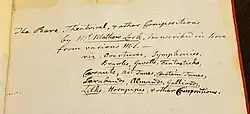 The Rare Theatrical, & other Compositions
by Mr. Mathew Lock, transcribed in Score
from various MS. —
viz: Overtures, Symphonies,
Brawls, Gavotts, Fantasticks,
Corronts, Act Tunes, Curtain Tunes,
Sarabands, Almands, Galliards,
Lilks, Hornpipes, & other Compositions.